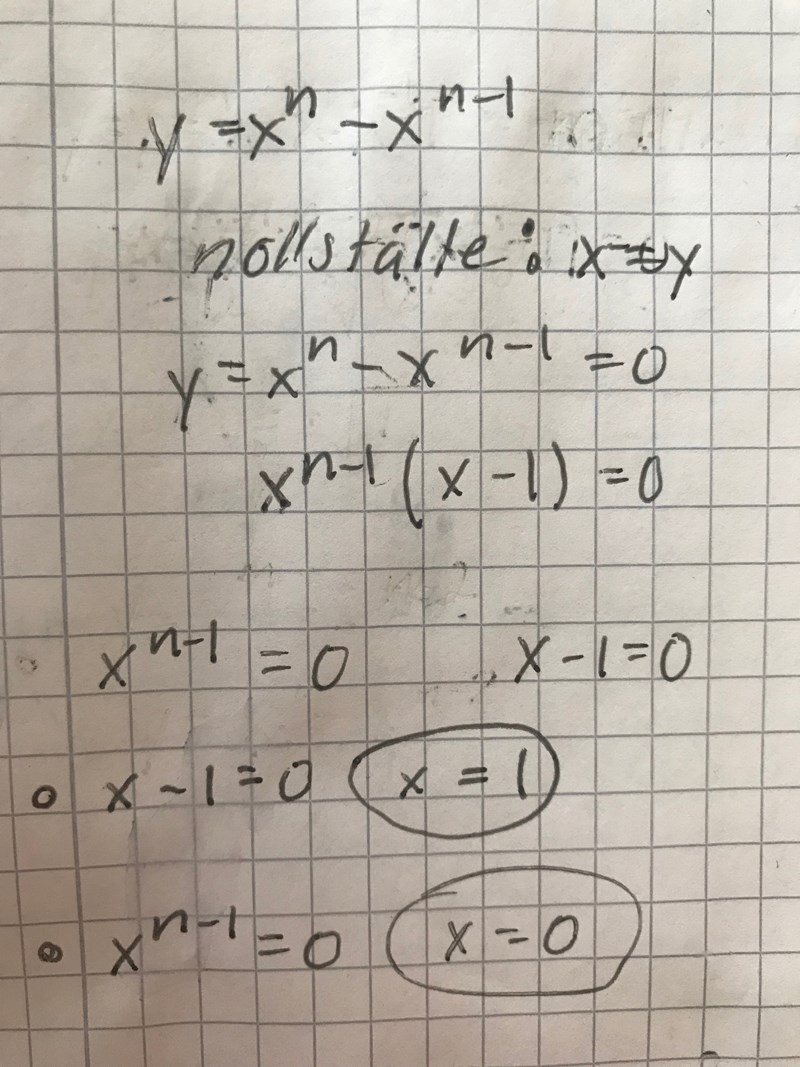 y = xⁿ - xⁿ⁻¹
nollställe:
y = xⁿ - xⁿ⁻¹ = 0
xⁿ⁻¹ (x - 1) = 0
xⁿ⁻¹ = 0 x - 1 = 0
∘ x - 1 = 0 x = 1
∘ xⁿ⁻¹ = 0 x = 0